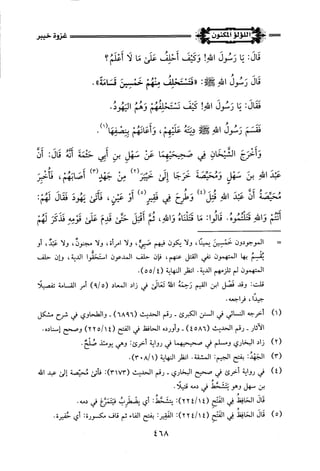 اللؤلؤ المكنون
غزوة خيبر
قَالَ: يَا رَسُولَ اللهِ! وَكَيْفَ أَحْلِفُ عَلَى مَا لَا أَعْلَمُ؟
قَالَ رَسُولُ اللهِ ﷺ: «فَتَسْتَحْلِفُ مِنْهُمْ خَمْسِينَ قَسَامَةً».
فَقَالَ: يَا رَسُولَ اللهِ! كَيْفَ نَسْتَحْلِفُهُمْ وَهُمُ الْيَهُودُ.
فَقَسَمَ رَسُولُ اللهِ ﷺ دِيَتَهُ عَلَيْهِمْ، وَأَعَانَهُمْ بِنِصْفِهَا(١).
وَأَخْرَجَ الشَّيْخَانِ فِي صَحِيحَيْهِمَا عَنْ سَهْلِ بنِ أَبِي حَثْمَةَ أَنَّهُ قَالَ: أَنَّ
عَبْدَ اللهِ بنَ سَهْلٍ وَمُحَيِّصَةَ خَرَجَا إِلَى خَيْبَرَ(٢) مِنْ جَهْدٍ(٣) أَصَابَهُمْ، فَأُخْبِرَ
مُحَيِّصَةُ أَنَّ عَبْدَ اللهِ قُتِلَ(٤) وَطُرِحَ فِي فَقِيرٍ(٥) أَوْ عَيْنٍ، فَأَتَى يَهُودَ فَقَالَ لَهُمْ:
أَنْتُمْ وَاللهِ قَتَلْتُمُوهُ. قَالُوا: مَا قَتَلْنَاهُ وَاللهِ، ثُمَّ أَقْبَلَ حَتَّى قَدِمَ عَلَى قَوْمِهِ فَذَكَرَ لَهُمْ
= الموجودون خمسين يمينًا، ولا يكون فيهم صبي، ولا امرأة، ولا مجنون، ولا عبد، أو
يُقسم بها المتهمون على نفي القتل عنهم، فإن حلف المدعون استحقوا الدية، وإن حلف
المتهمون لم تلزمهم الدية. انظر النهاية (٥٥/٤).
قلت: وقد فصل ابن القيم رحمه الله تعالى في زاد المعاد (٩/٥) أمر القسامة تفصيلًا
جيدًا، فراجعه.
(١) أخرجه النسائي في السنن الكبرى - رقم الحديث (٦٨٩٦) - والطحاوي في شرح مشكل
الآثار - رقم الحديث (٤٥٨٦) - وأورده الحافظ في الفتح (٢٢٥/١٤) وصحح إسناده.
(٢) زاد البخاري ومسلم في صحيحيهما في رواية أخرى: وهي يومئذ صُلح.
(٣) الجَهْدُ: بفتح الجيم: المشقة. انظر النهاية (٣٠٨/١).
(٤) في رواية أخرى في صحيح البخاري - رقم الحديث (٣١٧٣): فأتى مُحَيِّصة إلى عبد الله
بن سهل وهو يتشحَّط في دمه قتيلًا.
قَالَ الحَافِظُ فِي الفَتْحِ (٢٢٤/١٤): يتشحَّط: أي يضطرب فيتمرَّغ في دمه.
(٥) قَالَ الحَافِظُ فِي الفَتْحِ (٢٢٤/١٤): الفَقِير: بفتح الفاء ثم قاف مكسورة: أي حَفِيرة.
٤٦٨